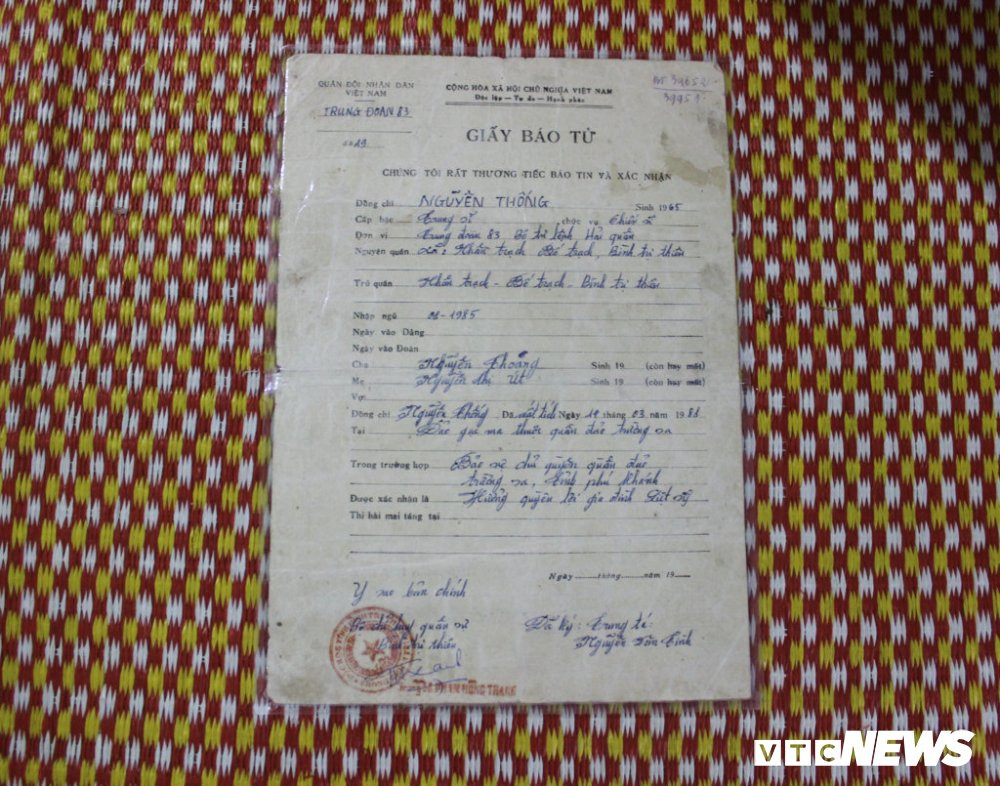 QUÂN ĐỘI NHÂN DÂN
VIỆT NAM
TRUNG ĐOÀN 83
CỘNG HÒA XÃ HỘI CHỦ NGHĨA VIỆT NAM
Độc lập — Tự do — Hạnh phúc
GIẤY BÁO TỬ
CHÚNG TÔI RẤT THƯƠNG TIẾC BÁO TIN VÀ XÁC NHẬN
Đồng chí NGUYỄN THỐNG Sinh 1965
Cấp bậc Trung sĩ chức vụ Chiến sĩ
Đơn vị Trung đoàn 83 Bộ tư lệnh Hải quân
Nguyên quán Khân trạch Bố trạch, Bình trị thiên
Trú quán Khân trạch - Bố trạch - Bình trị thiên
Nhập ngũ 1985
Ngày vào Đảng
Ngày vào Đoàn
Cha Nguyễn Khoáng Sinh 19 (còn hay mất)
Mẹ Nguyễn thị Út Sinh 19 (còn hay mất)
Vợ
Đồng chí Nguyễn Thống Đã mất tích Ngày tháng 03 năm 1988
Tại Đảo gạc ma thuộc quần đảo trường sa
Trong trường hợp Bảo vệ chủ quyền quần đảo
trường sa, tỉnh phú khánh
Được xác nhận là Hưởng quyền lợi gia đình liệt sỹ
Thi hài mai táng tại
Ngày......tháng......năm 19
Y sao bản chính
chỉ huy quân sự
Bình trị thiên
Đã ký: Trung tá
Nguyễn
VTC NEWS